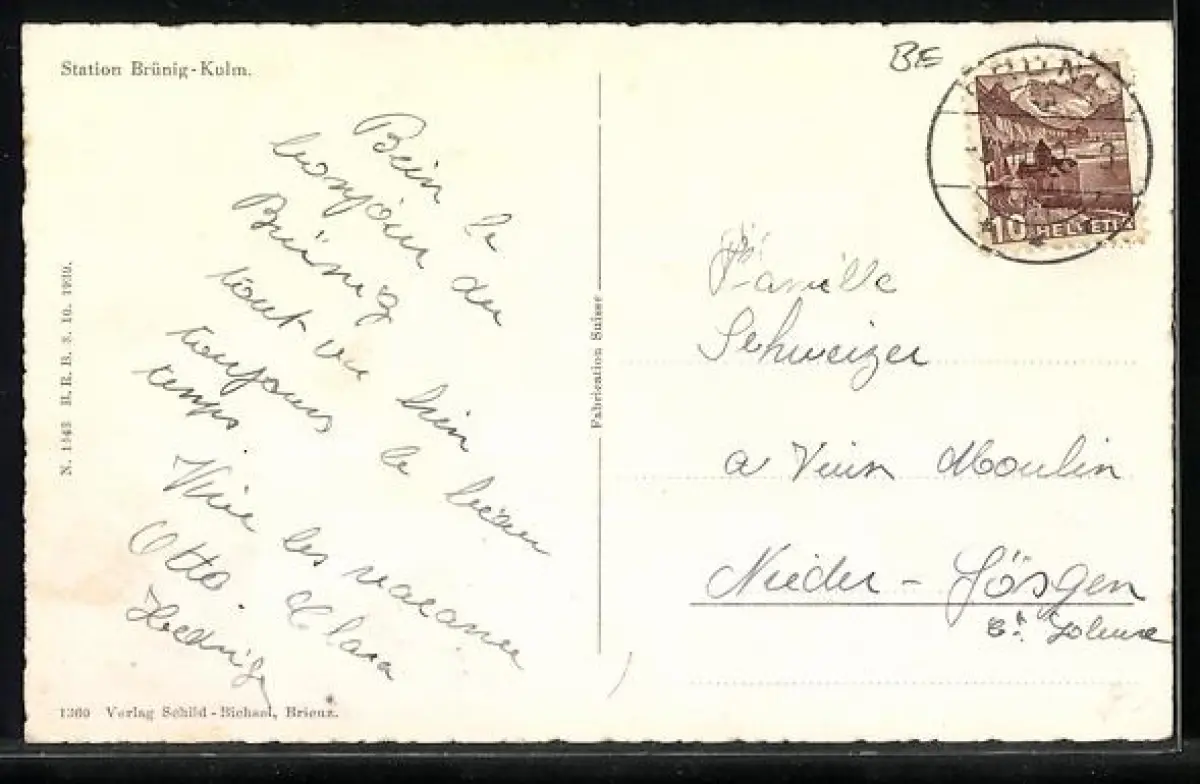 Station Brünig-Kulm.
BE
10 HELVETIA
Bein le
bonjour du
Brünig
tout va bien
toujours le beau
temps.
Vive les vacances
Otto. Clara
Hedwig
N. 1143 H. R. B. 3. 10. 1930.
1360 Verlag Schild-Bichsel, Brienz.
Fabrication Suisse
Famille
Schweizer
a Vuin Moulin
Nieder-Gösgen
Ct. Soleure